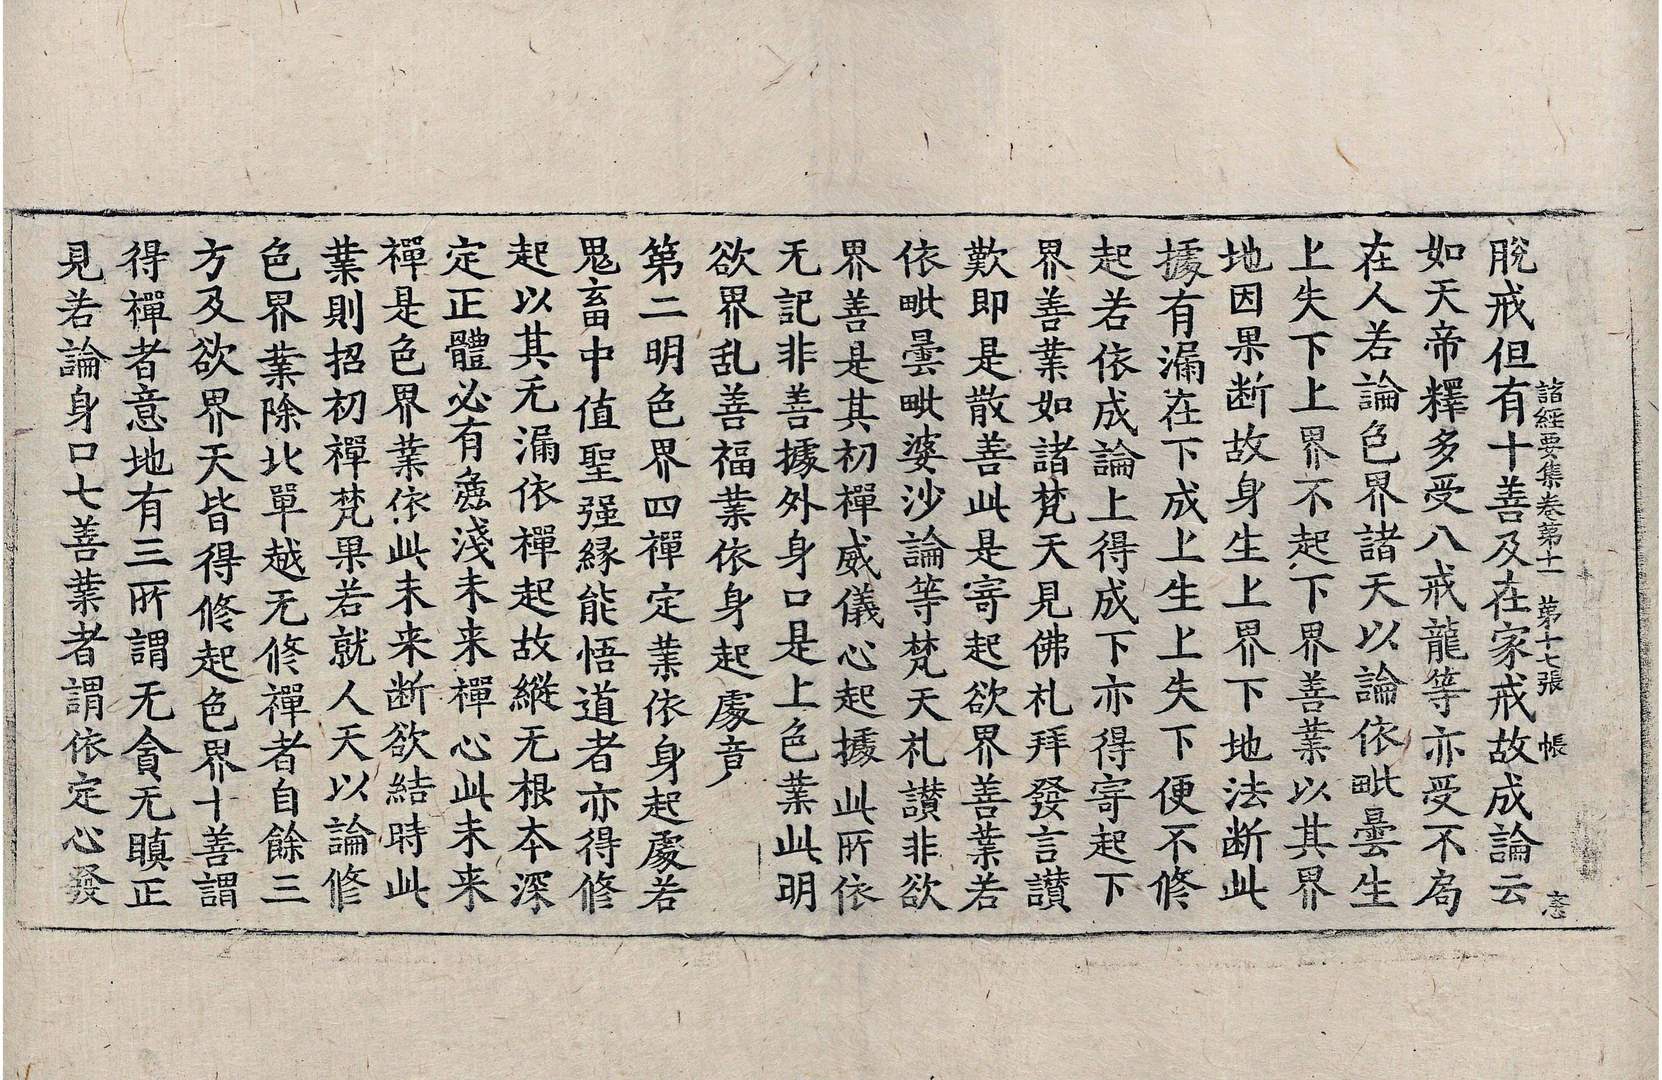 諸經要集卷第十一 第十七張 帳
脫戒但有十善及在家戒故成論云
如天帝釋多受八戒龍等亦受不局
在人若論色界諸天以論依毗曇生
上失下上界不起下界善業以其界
地因果断故身生上界下地法断此
據有漏在下成上生上失下便不修
起若依成論上得成下亦得寄起下
界善業如諸梵天見佛礼拜發言讃
歎即是散善此是寄起欲界善業若
依毗曇毗婆沙論等梵天礼讃非欲
界善是其初禪威儀心起據此所依
无記非善據外身口是上色業此明
欲界乱善福業依身起處竟
第二明色界四禪定業依身起處若
鬼畜中值聖强緣能悟道者亦得修
起以其无漏依禪起故縱无根本深
定正體必有麁淺未来禪心此未来
禪是色界業依此未来断欲結時此
業則招初禪梵果若就人天以論修
色界業除北單越无修禪者自餘三
方及欲界天皆得修起色界十善謂
得禪者意地有三所謂无貪无瞋正
見若論身口七善業者謂依定心發